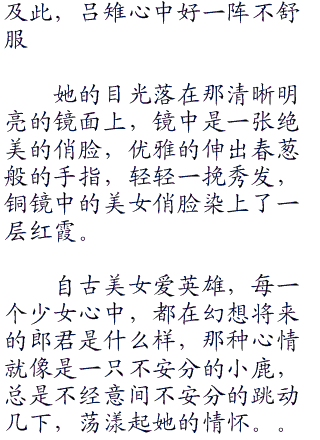 及此，吕雉心中好一阵不舒
服
她的目光落在那清晰明
亮的镜面上，镜中是一张绝
美的俏脸，优雅的伸出春葱
般的手指，轻轻一挽秀发，
铜镜中的美女俏脸染上了一
层红霞。
自古美女爱英雄，每一
个少女心中，都在幻想将来
的郎君是什么样，那种心情
就像是一只不安分的小鹿，
总是不经意间不安分的跳动
几下，荡漾起她的情怀。。